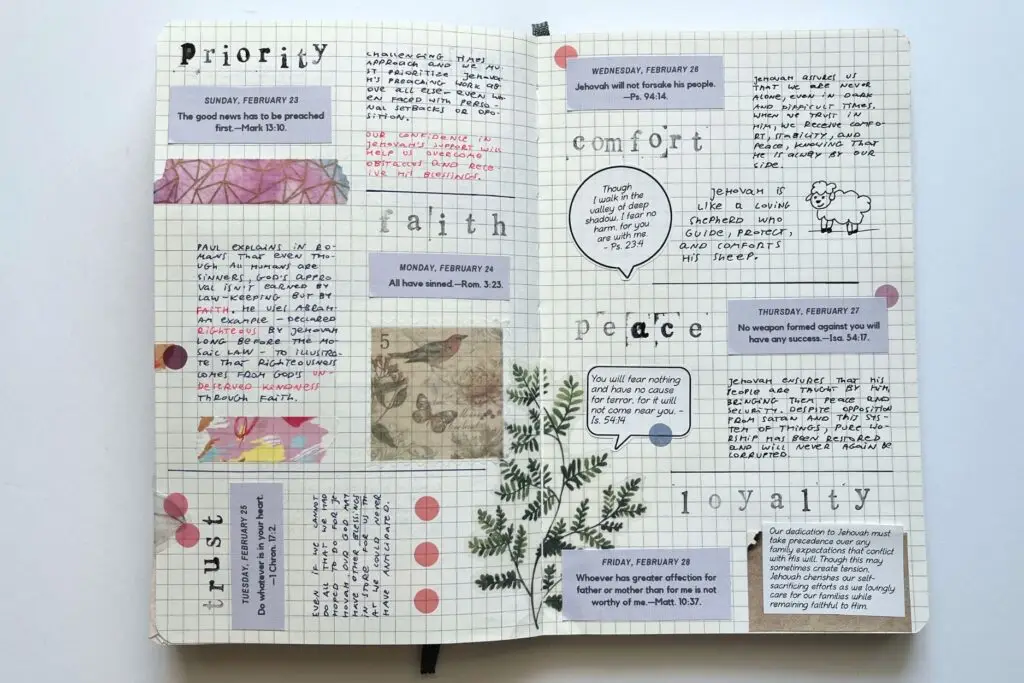 Priority
SUNDAY, FEBRUARY 23
The good news has to be preached
first.—Mark 13:10.
CHALLENGING TIMES
APPROACH AND WE MU-
ST PRIORITIZE JEHOVA-
H'S PREACHING WORK AB-
OVE ALL ELSE- EVEN WH-
EN FACED WITH PERSO-
NAL SETBACKS OR OPO-
SITION.
OUR CONFIDENCE IN
JEHOVAH'S SUPPORT WILL
HELP US OVERCOME
OBSTACLES AND RECE-
IVE HIS BLESSINGS.
faith
MONDAY, FEBRUARY 24
All have sinned.—Rom. 3:23.
PAUL EXPLAINS IN RO-
MANS THAT EVEN THO-
UGH ALL HUMANS ARE
SINNERS, GOD'S APPRO-
VAL ISN'T EARNED BY
LAW-KEEPING BUT BY
FAITH. HE USES ABRAH-
AM EXAMPLE - DECLARED
RIGHTEOUS BY JEHOVAH
LONG BEFORE THE MO-
SAIC LAW - TO ILLUSTRA-
TE THAT RIGHTEOUSNESS
COMES FROM GOD'S UN-
DESERVED KINDNESS
THROUGH FAITH.
5
trust
TUESDAY, FEBRUARY 25
Do whatever is in your heart.
—1 Chron. 17:2.
EVEN IF WE CANNOT
DO ALL THAT WE HAD
HOPED TO DO FOR JE-
HOVAH, OUR GOD MAY
HAVE OTHER BLESSINGS
IN STORE FOR US TH-
AT WE COULD NEVER
HAVE ANTICIPATED.
WEDNESDAY, FEBRUARY 26
Jehovah will not forsake his people.
—Ps. 94:14.
comfort
JEHOVAH ASSURES US
THAT WE ARE NEVER
ALONE, EVEN IN DARK
AND DIFFICULT TIMES.
WHEN WE TRUST IN
HIM, WE RECEIVE COMFO-
RT, STABILITY, AND
PEACE, KNOWING THAT
HE IS ALWAY BY OUR
SIDE.
Though
I walk in the
valley of deep
shadow, I fear no
harm, for you
are with me.
- Ps. 23:4
JEHOVAH IS
LIKE A LOVING
SHEPHERD WHO
GUIDE, PROTECT,
AND COMFORTS
HIS SHEEP.
peace
THURSDAY, FEBRUARY 27
No weapon formed against you will
have any success.—Isa. 54:17.
You will fear nothing
and have no cause
for terror, for it will
not come near you. -
Is. 54:14
JEHOVAH ENSURES THAT HIS
PEOPLE ARE TAUGHT BY HIM,
BRINGING THEM PEACE AND
SECURITY. DESPITE OPPOSITION
FROM SATAN AND THIS SYS-
TEM OF THINGS, PURE WO-
RSHIP HAS BEEN RESTORED
AND WILL NEVER AGAIN BE
CORRUPTED.
loyalty
FRIDAY, FEBRUARY 28
Whoever has greater affection for
father or mother than for me is not
worthy of me.—Matt. 10:37.
Our dedication to Jehovah must
take precedence over any
family expectations that conflict
with His will. Though this may
sometimes create tension,
Jehovah cherishes our self-
sacrificing efforts as we lovingly
care for our families while
remaining faithful to Him.